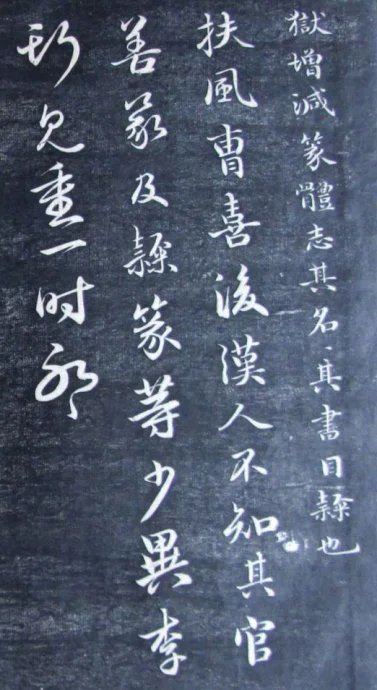 獄增減篆體志其名〻其書曰隸也
扶風曹喜後漢人不知其官
善篆及隸篆等少異李
斯見重一时耶